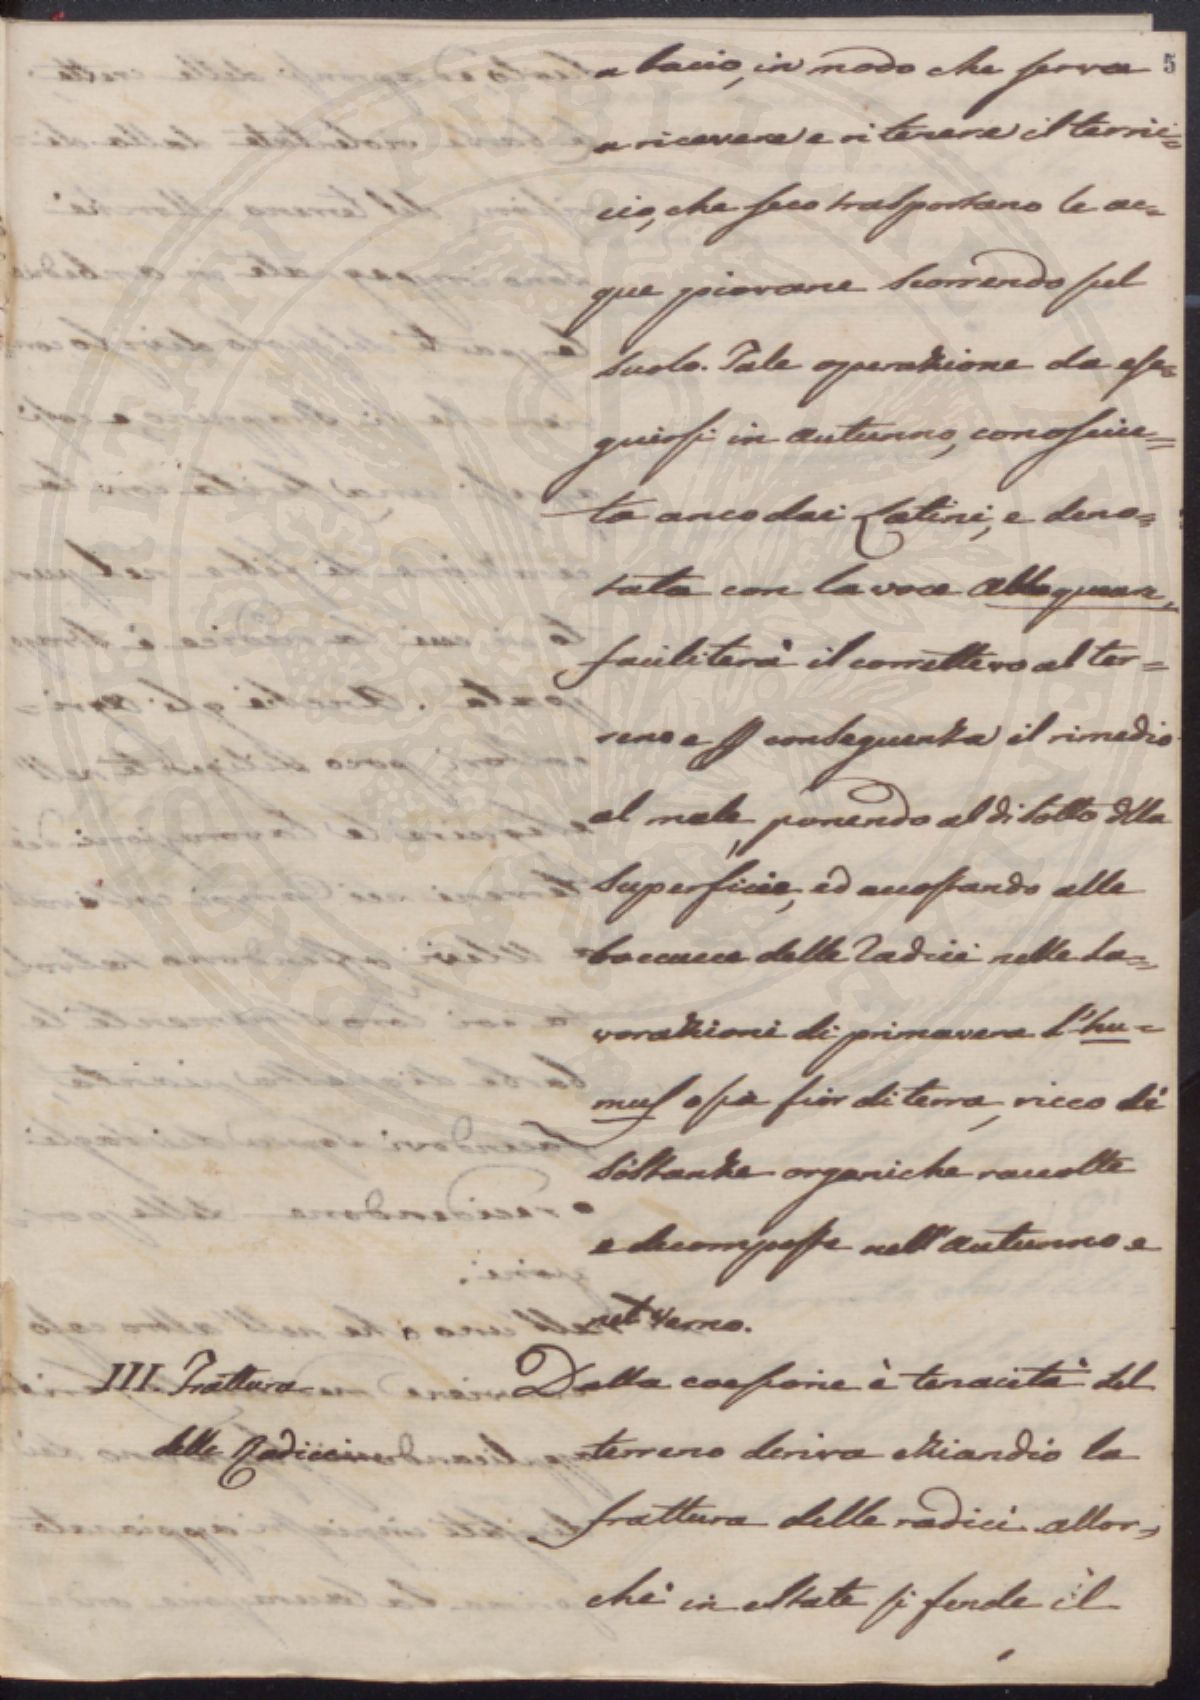 5
a bacio, in modo che serva
a ricevere e ritenere il terric=
cio, che seco trasportano le ac=
que piovane scorrendo sul
suolo. Tale operazione da ese=
guirsi in autunno, conosciu=
ta anco dai Latini, e deno=
tata con la voce ablaqueare,
faciliterà il correttivo al ter=
reno e p conseguenza il rimedio
al male, ponendo al di sotto della
superficie, ed accostando alle
boccucce delle radici nelle la=
vorazioni di primavera l'hu=
mus ossia fior di terra, ricco di
sostanze organiche raccolte
e decomposte nell'autunno e
nel verno.
III. Frattura
delle Radici
Dalla coesione e tenacità del
terreno deriva eziandio la
frattura delle radici allor=
chè in estate si fende il